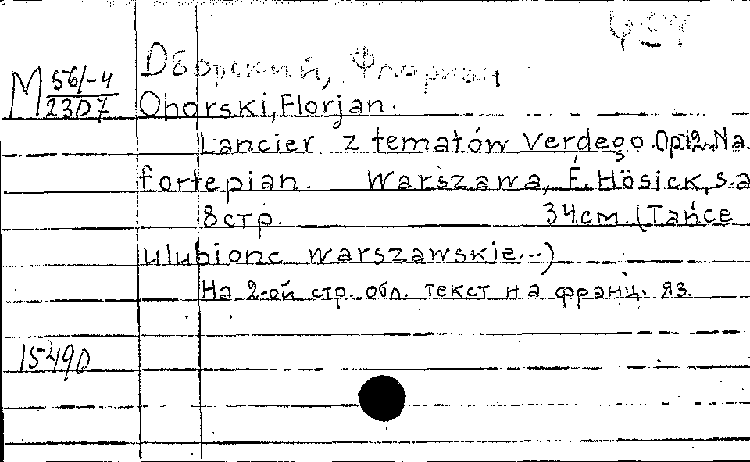 М 56/-4
2307
Оборский, Флориан
Oborski, Florjan.
Lancier z tematów Verdego. Op.12. Na
fortepian. Warszawa, F. Hösick, s.a
8стр. 34см. (Tańce
ulubione warszawskie...)
На 2-ой стр. обл. текст на франц. яз.
15490